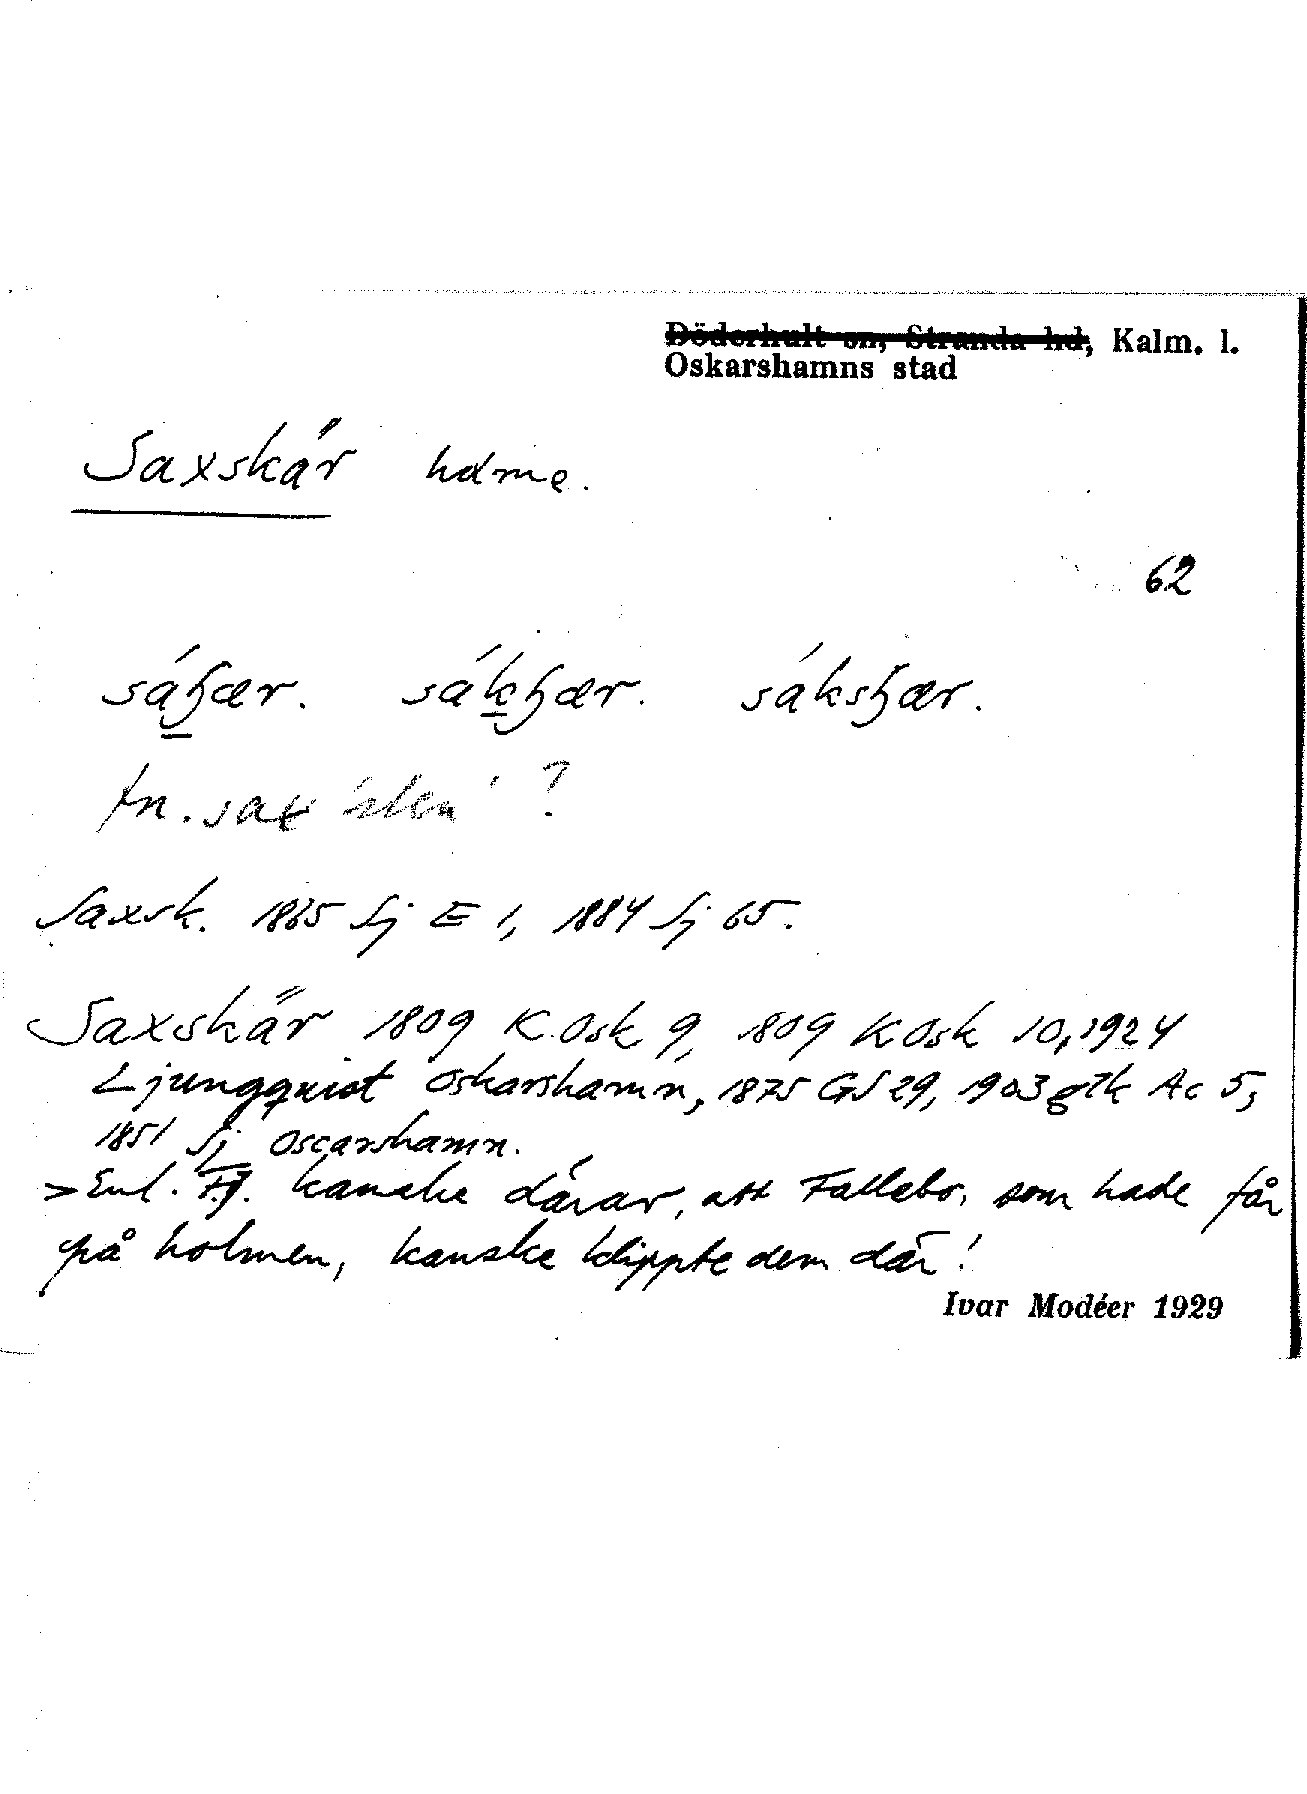 Döderhult sn, Stranda hd, Kalm. l.
Oskarshamns stad
Saxskär holme.
62
sáꞕær. sákꞕær. sáksꞕær.
fn. sax 'sten' ?
Saxsk. 1865 Sj E 1, 1884 Sj 65.
Saxskär 1809 K Osk 9, 1809 K Osk 10, 1924
Ljungqquist Oskarshamn, 1875 GS 29, 1903 gtk Ac 5,
1851 Sj Oscarshamn.
> Enl. FJ. kanske därav, att Fallebo, som hade får
på holmen, kanske klippte dem där!
Ivar Modéer 1929